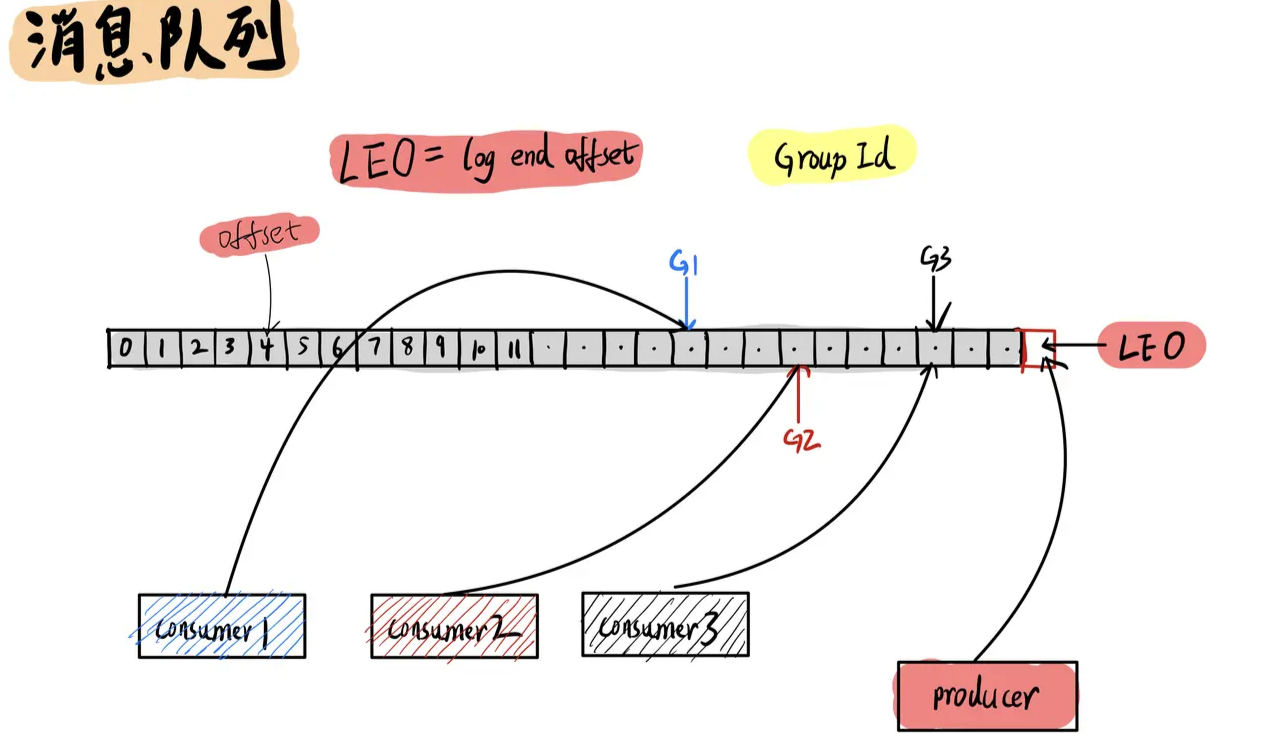 消息队列
LEO = log end offset
Group Id
offset
G1
G3
0 1 2 3 4 5 6 7 8 9 10 11 . . . . . . . . . . . . . .
LEO
G2
consumer 1
consumer 2
consumer 3
producer